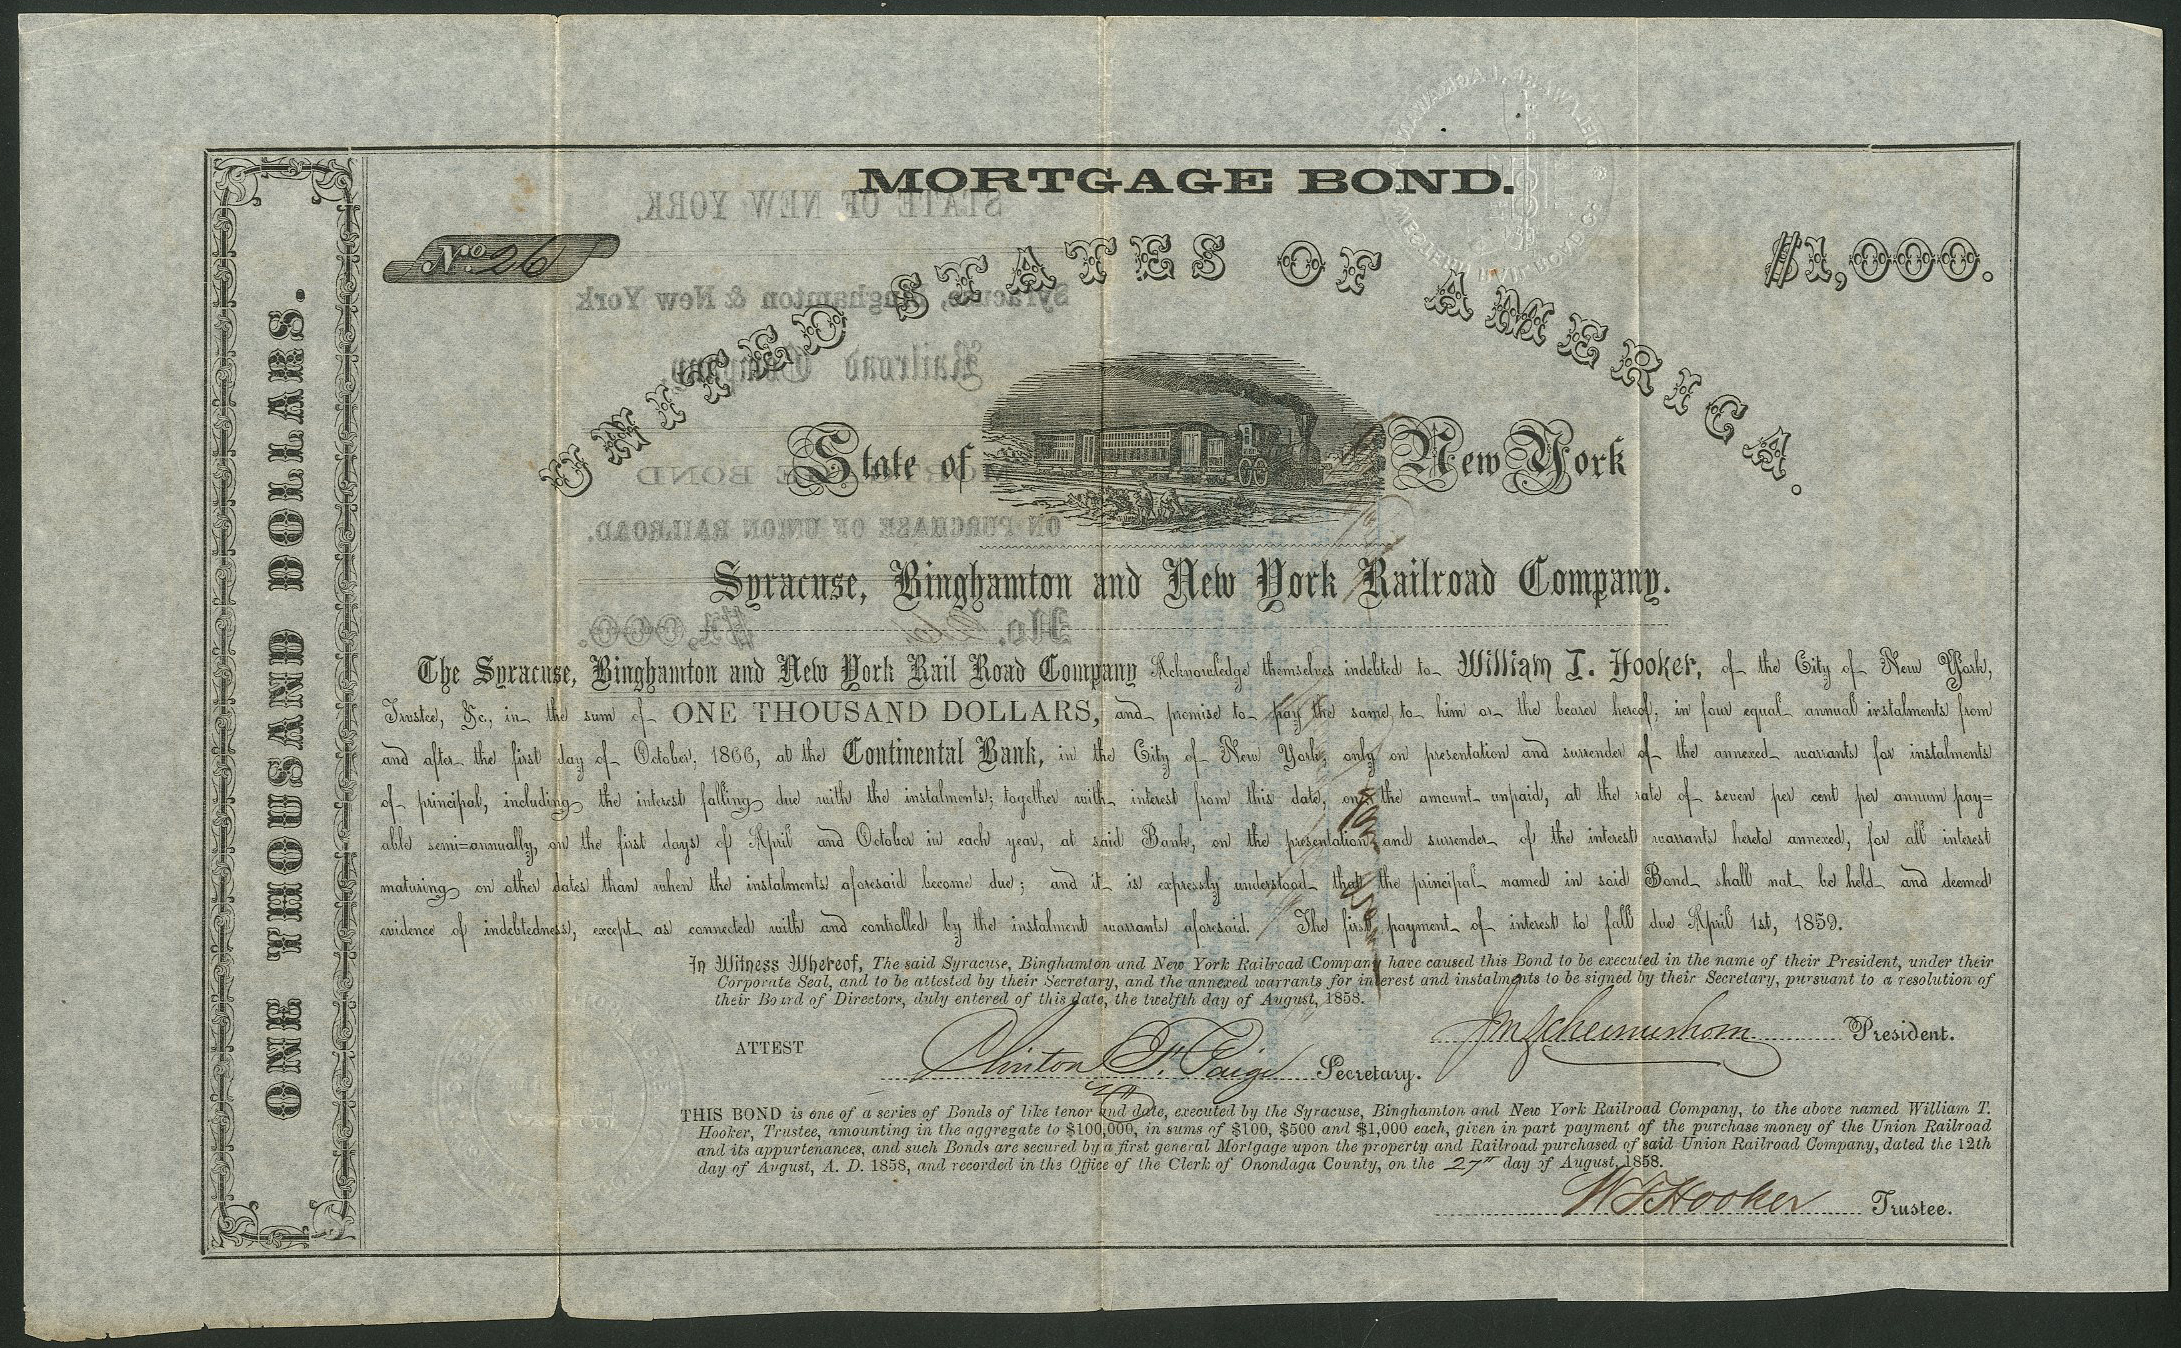 MORTGAGE BOND.
No. 26
$1,000.
UNITED STATES OF AMERICA.
State of New York
Syracuse, Binghamton and New York Railroad Company.
ONE THOUSAND DOLLARS.
The Syracuse, Binghamton and New York Rail Road Company Acknowledge themselves indebted to William T. Hooker, of the City of New York,
Trustee, &c., in the sum of ONE THOUSAND DOLLARS, and promise to pay the same to him or the bearer hereof, in four equal annual instalments from
and after the first day of October, 1866, at the Continental Bank, in the City of New York, only on presentation and surrender of the annexed warrants for instalments
of principal, including the interest falling due with the instalments; together with interest from this date, on the amount unpaid, at the rate of seven per cent per annum pay=
able semi=annually, on the first days of April and October in each year, at said Bank, on the presentation and surrender of the interest warrants hereto annexed, for all interest
maturing on other dates than when the instalments aforesaid become due; and it is expressly understood that the principal named in said Bond shall not be held and deemed
evidence of indebtedness, except as connected with and controlled by the instalment warrants aforesaid. The first payment of interest to fall due April 1st, 1859.
In Witness Whereof, The said Syracuse, Binghamton and New York Railroad Company have caused this Bond to be executed in the name of their President, under their
Corporate Seal, and to be attested by their Secretary, and the annexed warrants for interest and instalments to be signed by their Secretary, pursuant to a resolution of
their Board of Directors, duly entered of this date, the twelfth day of August, 1858.
J M Schermerhorn President.
ATTEST Clinton F. Paige Secretary.
THIS BOND is one of a series of Bonds of like tenor and date, executed by the Syracuse, Binghamton and New York Railroad Company, to the above named William T.
Hooker, Trustee, amounting in the aggregate to $100,000, in sums of $100, $500 and $1,000 each, given in part payment of the purchase money of the Union Railroad
and its appurtenances, and such Bonds are secured by a first general Mortgage upon the property and Railroad purchased of said Union Railroad Company, dated the 12th
day of August, A. D. 1858, and recorded in the Office of the Clerk of Onondaga County, on the 27th day of August, 1858.
W T Hooker Trustee.
STATE OF NEW YORK,
Syracuse, Binghamton & New York
Railroad Company,
MORTGAGE BOND
ON PURCHASE OF UNION RAILROAD.
No. 26 $1,000.
DELAWARE, LACKAWANNA & WESTERN RAIL ROAD Co